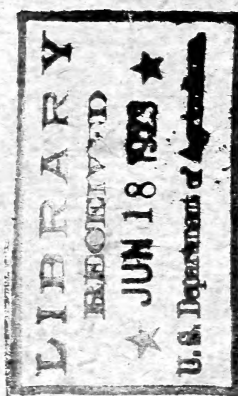 LIBRARY
RECEIVED
★ JUN 18 1923 ★
U. S. Department of Agriculture